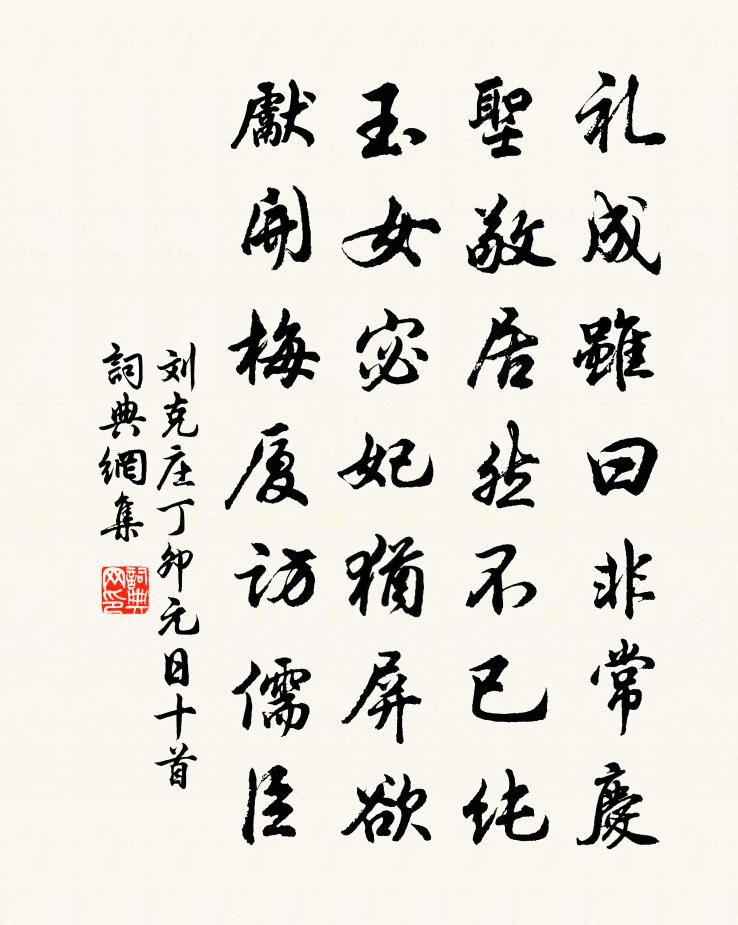 礼成雖曰非常慶
聖敬居然不已純
玉女宓妃猶屏欲
獻開梅厦访儒臣
刘克庄丁卯元日十首
詞典網集
詞典
网印